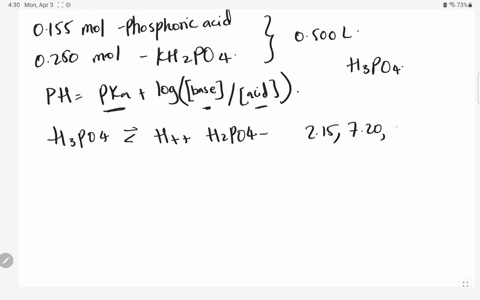 4:30 Mon, Apr 3
73%
0.155 mol - Phosphoric acid
0.250 mol - KH2PO4.
0.500 L.
H3PO4.
PH = PKa + log([base]/[acid]).
H3PO4 ⇌ H++ H2PO4- 2.15, 7.20,